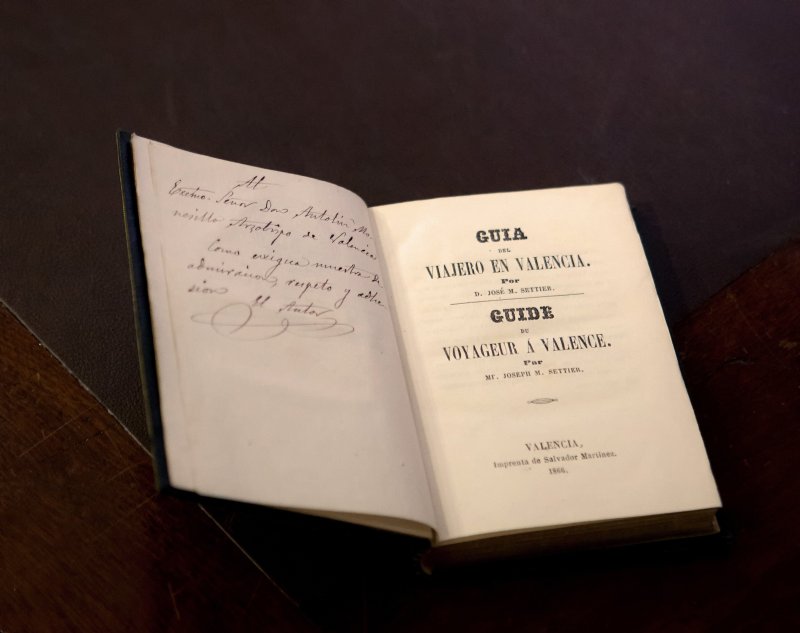 Al
Exmo. Señor Don Antolin Mo-
nesillo Arzobispo de Valencia
Como exigua muestra de
admiracion, respeto y adhe-
sion El Autor
GUIA
DEL
VIAJERO EN VALENCIA.
Por
D. JOSÉ M. SETTIER.
GUIDE
DU
VOYAGEUR Á VALENCE.
Par
Mr. JOSEPH M. SETTIER.
VALENCIA,
Imprenta de Salvador Martinez.
1866.